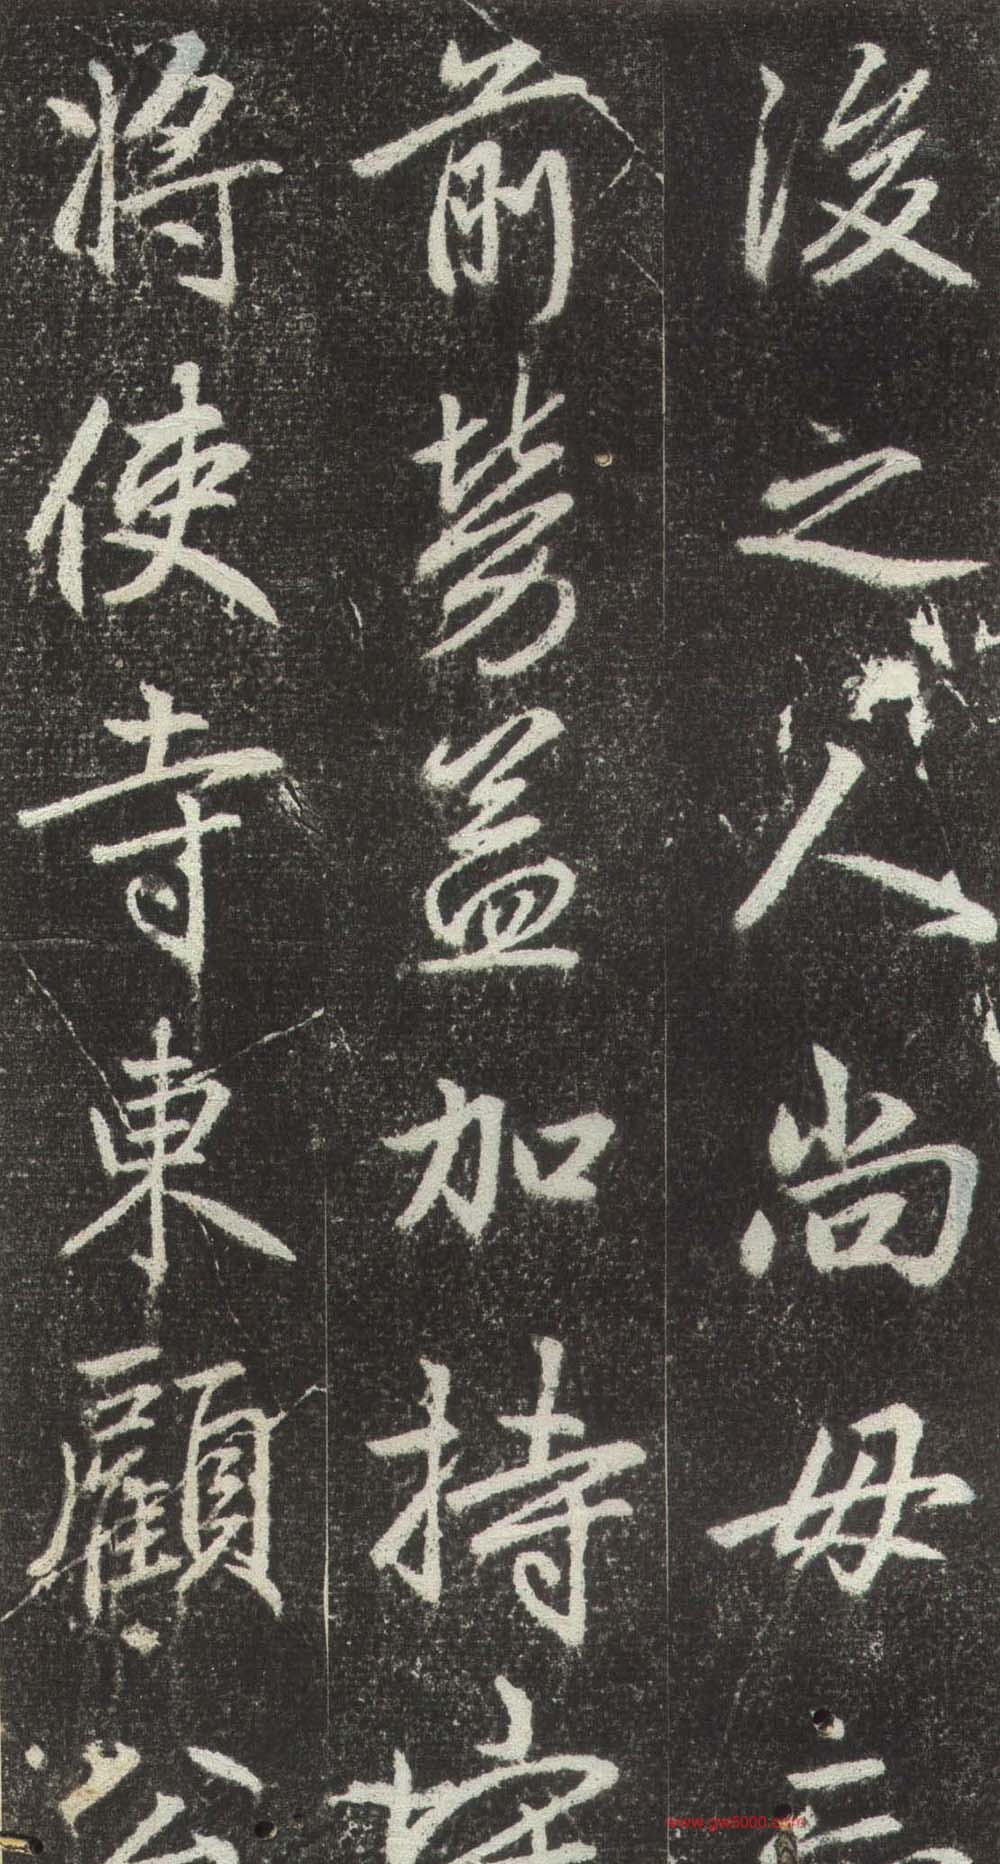 後之人尚毋
前勞益加持
將使寺東顧
www.gw5000.com